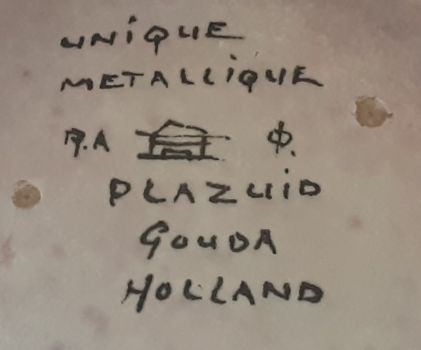 UNiQUE
METALLiQUE
R.A Φ.
PLAZUiD
GOUDA
HOLLAND